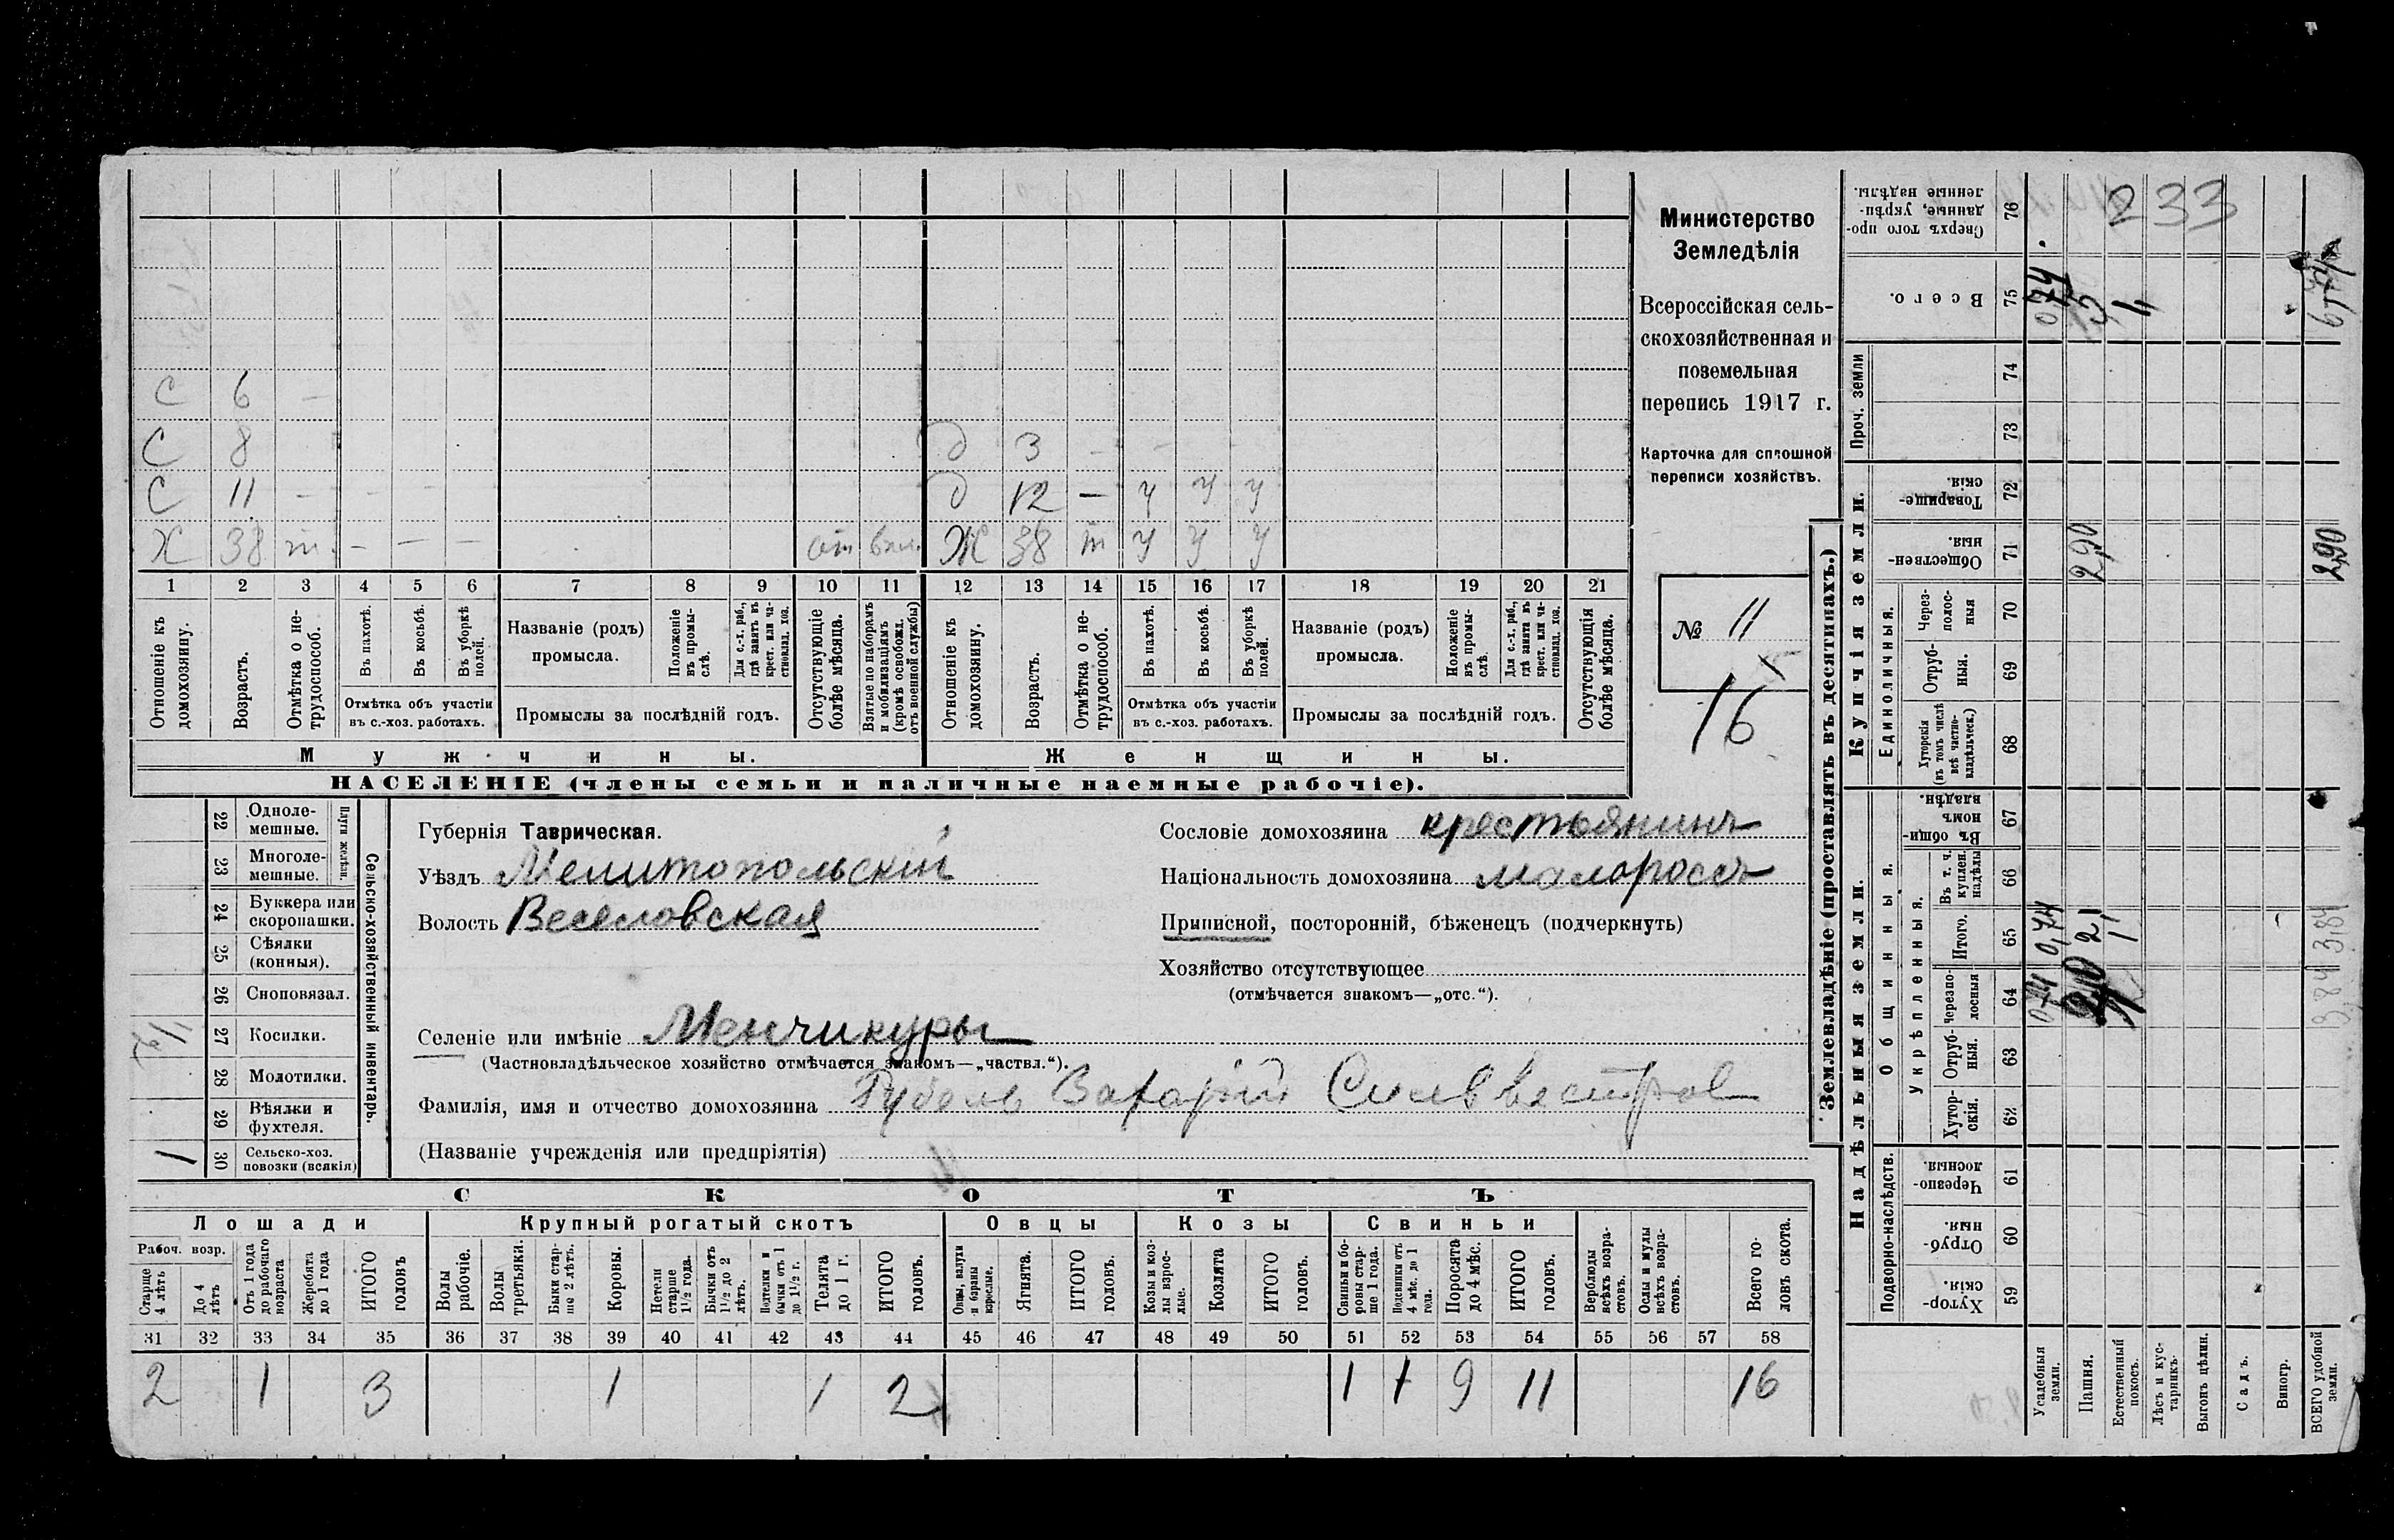 С 6 —
С 8 д 3 — —
С 11 — — — д 12 — у у у
Х 38 т — — — от Ж 38 т у у у
1 2 3 4 5 6 7 8 9 10 11 12 13 14 15 16 17 18 19 20 21
Отношеніе къ домохозяину.
Возрастъ.
Отмѣтка о нетрудоспособ.
Въ пахотѣ.
Въ косьбѣ.
Въ уборкѣ полей.
Отмѣтка объ участіи
въ с.-хоз. работахъ.
Названіе (родъ)
промысла.
Положеніе въ промыслѣ.
Для с.-х. раб., гдѣ занятъ въ крест. или частновлад. хоз.
Промыслы за послѣдній годъ.
Отсутствующіе болѣе мѣсяца.
Взятые по наборамъ и мобилизаціямъ (кромѣ освобожд. отъ военной службы)
Отношеніе къ домохозяину.
Возрастъ.
Отмѣтка о нетрудоспособ.
Въ пахотѣ.
Въ косьбѣ.
Въ уборкѣ полей.
Отмѣтка объ участіи
въ с.-хоз. работахъ.
Названіе (родъ)
промысла.
Положеніе въ промыслѣ.
Для с.-х. раб., гдѣ занята въ крест. или частновлад. хоз.
Промыслы за послѣдній годъ.
Отсутствующія болѣе мѣсяца.
Мужчины. Женщины.
НАСЕЛЕНІЕ (члены семьи и наличные наемные рабочіе).
Министерство
Земледѣлія
Всероссійская сель-
скохозяйственная и
поземельная
перепись 1917 г.
Карточка для сплошной
переписи хозяйствъ.
№ 11
16
22 Одноле-
мешные.
23 Многоле-
мешные.
Плуги желѣзн.
24 Буккера или
скоропашки.
25 Сѣялки
(конныя).
26 Сноповязал.
27 Косилки.
1/2
28 Молотилки.
29 Вѣялки и
фухтеля.
30 Сельско-хоз.
повозки (всякія)
1
Сельско-хозяйственный инвентарь.
Губернія Таврическая.
Уѣздъ Мелитопольскій
Волость Веселовская
Сословіе домохозяина крестьянинъ
Національность домохозяина малороссъ
Приписной, посторонній, бѣженецъ (подчеркнуть)
Хозяйство отсутствующее
(отмѣчается знакомъ—„отс.“).
Селеніе или имѣніе Менчикуры
(Частновладѣльческое хозяйство отмѣчается знакомъ—„частвл.“).
Фамилія, имя и отчество домохозяина Губоль Захарій Сильвестров
(Названіе учрежденія или предпріятія)
СКОТЪ
Лошади Крупный рогатый скотъ Овцы Козы Свиньи
Рабоч. возр.
Старше 4 лѣтъ
До 4 лѣтъ
Отъ 1 года до рабочаго возраста
Жеребята до 1 года
ИТОГО головъ
Волы рабочіе.
Волы третьяки.
Быки старше 2 лѣтъ.
Коровы.
Нетели старше 1½ года.
Бычки отъ 1½ до 2 лѣтъ.
Подтелки и бычки отъ 1 до 1½ г.
Телята до 1 г.
ИТОГО головъ.
Овцы, валухи и бараны взрослые.
Ягнята.
ИТОГО головъ.
Козы и козлы взрослые.
Козлята
ИТОГО головъ.
Свиньи и боровы старше 1 года.
Подсвинки отъ 4 мѣс. до 1 года.
Поросята до 4 мѣс.
ИТОГО головъ.
Верблюды всѣхъ возрастовъ.
Ослы и мулы всѣхъ возрастовъ.
Всего головъ скота.
31 32 33 34 35 36 37 38 39 40 41 42 43 44 45 46 47 48 49 50 51 52 53 54 55 56 57 58
2 1 3 1 1 2 1 1 9 11 16
Землевладѣніе (проставлять въ десятинахъ.)
Купчія земли.
Надѣльныя земли.
Сверхъ того проданные, укрѣпленные надѣлы. 76
233
Всего. 75
Проч. земли 74 73
Товарищескія. 72
Общественныя. 71
2,90
2,90
Единоличныя.
Черезполосныя 70
Отрубныя. 69
Хуторскія (въ томъ числѣ всѣ частновладѣльческ.) 68
Въ общинномъ владѣн. 67
Общинныя.
Укрѣпленныя.
Въ т. ч. куплен. надѣлы 66
Итого. 65
0,74 2,1 1
3,84
Черезполосныя 64
Отрубныя. 63
Хуторскія. 62
Подворно-наслѣдств.
Черезполосныя. 61
Отрубныя. 60
Хуторскія. 59
Усадебныя земли.
Пашня.
Естественный покосъ.
Лѣсъ и кустарникъ.
Выгонъ цѣлин.
Садъ.
Виногр.
ВСЕГО удобной земли.